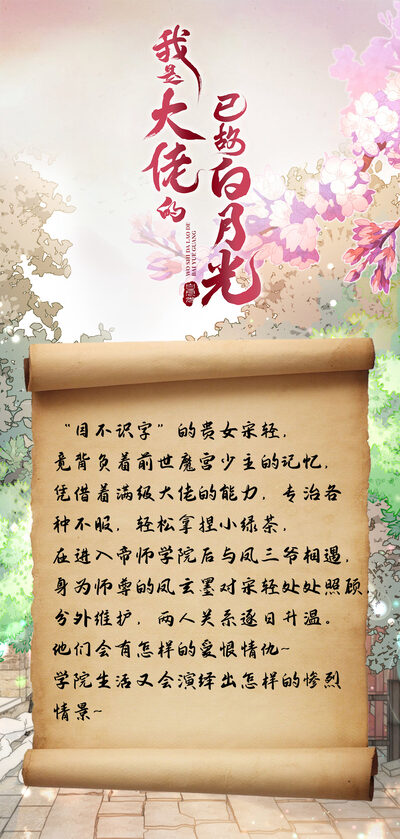 我是大佬的
已故白月光
WO SHI DA LAO DE
BAI YUE GUANG
“目不识字”的贵女宋轻，
竟背负着前世魔宫少主的记忆，
凭借着满级大佬的能力，专治各
种不服，轻松拿捏小绿茶，
在进入帝师学院后与凤三爷相遇，
身为师尊的凤玄墨对宋轻处处照顾，
分外维护，两人关系逐日升温。
他们会有怎样的爱恨情仇~
学院生活又会演绎出怎样的惨烈
情景~